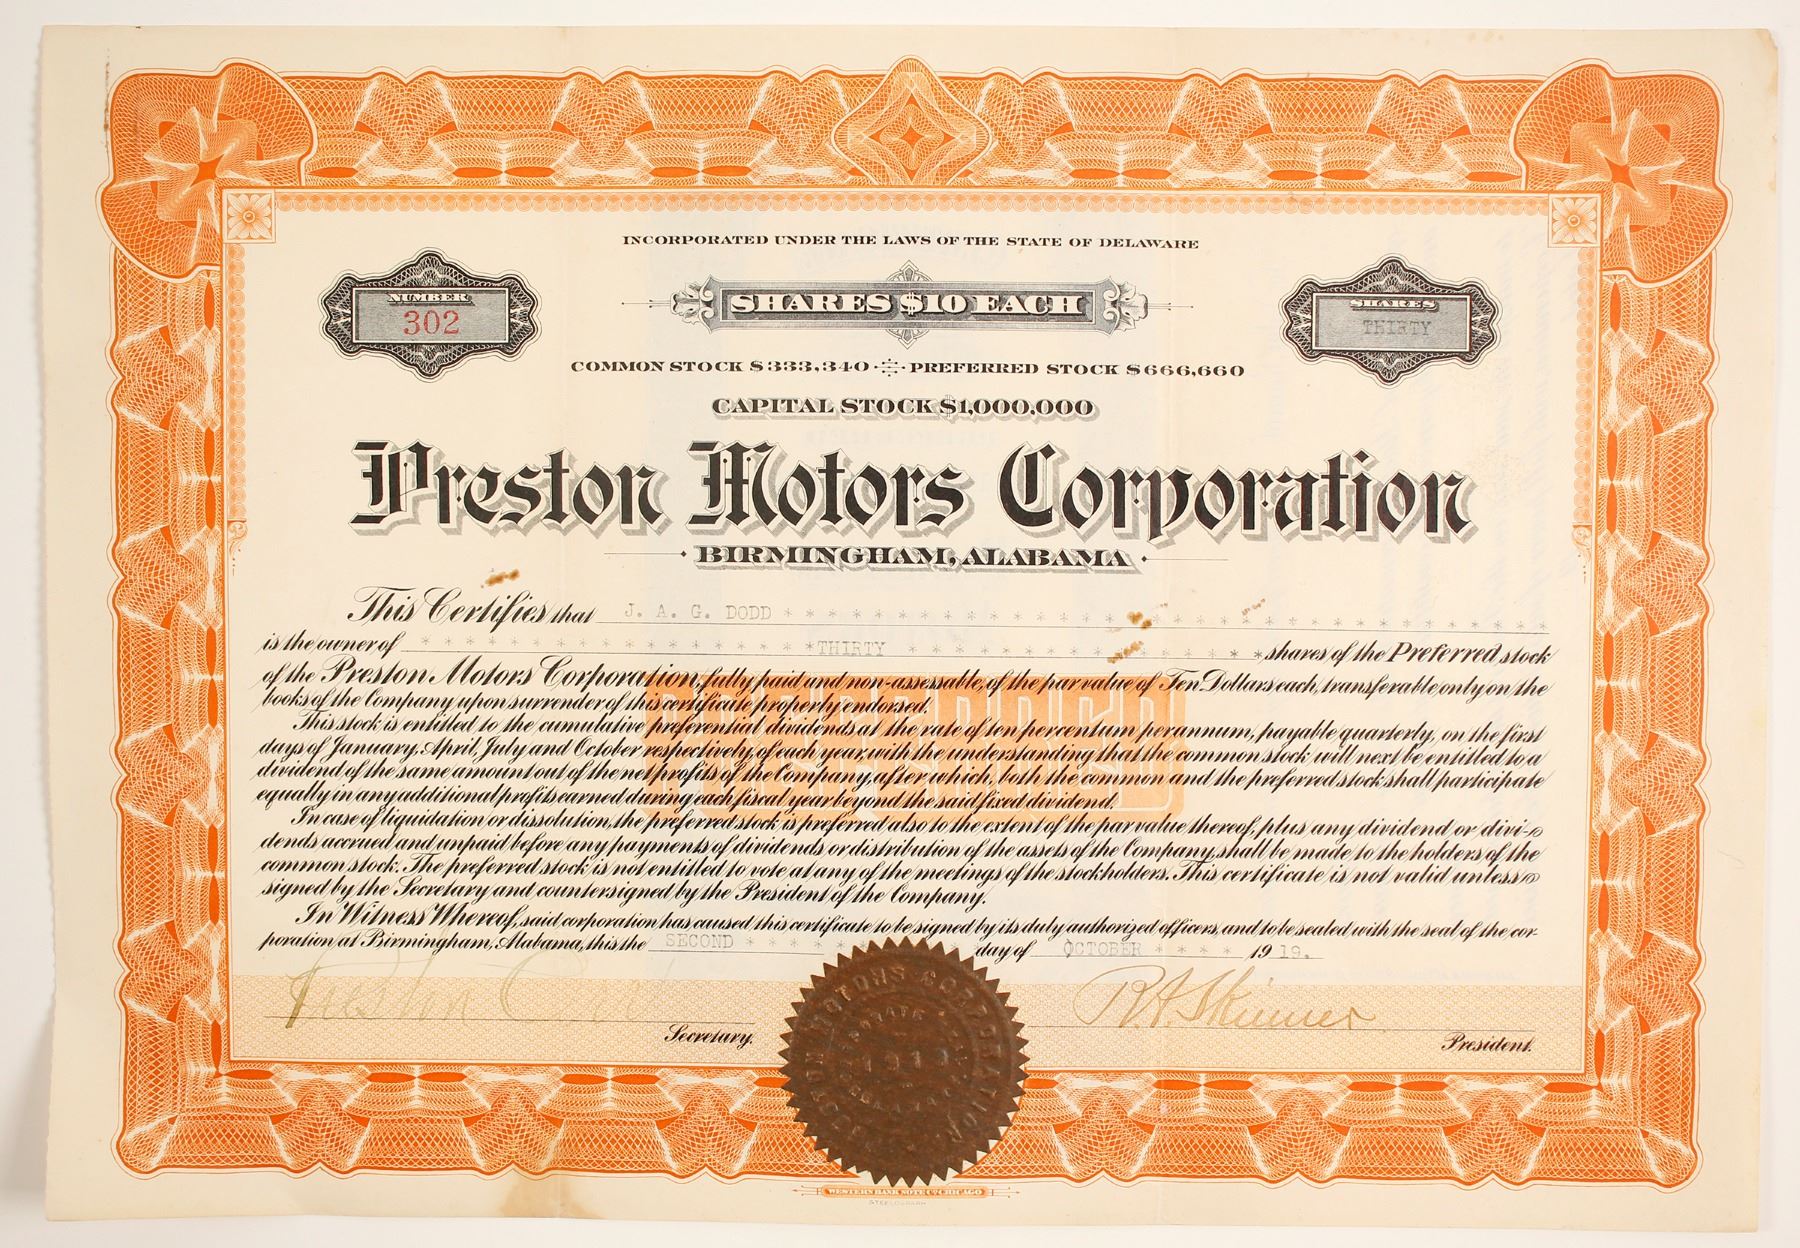 INCORPORATED UNDER THE LAWS OF THE STATE OF DELAWARE
NUMBER
302
SHARES $10 EACH
SHARES
THIRTY
COMMON STOCK $333,340 PREFERRED STOCK $666,660
CAPITAL STOCK $1,000,000
Preston Motors Corporation
BIRMINGHAM, ALABAMA
This Certifies that J. A. G. DODD * * * * * * * * * * * * * * * * * * * * * * * * * * * * * * * * * *
is the owner of * * * * * * * * * * * * * * * * * *THIRTY * * * * * * * * * * * * * * * * shares of the Preferred stock
of the Preston Motors Corporation, fully paid and non-assessable, of the par value of Ten Dollars each, transferable only on the
books of the Company upon surrender of this certificate properly endorsed.
This stock is entitled to the cumulative preferential dividends at the rate of ten per centum per annum, payable quarterly, on the first
days of January, April, July and October respectively, of each year, with the understanding that the common stock will next be entitled to a
dividend of the same amount out of the net profits of the Company, after which, both the common and the preferred stock shall participate
equally in any additional profits earned during each fiscal year beyond the said fixed dividend.
In case of liquidation or dissolution, the preferred stock is preferred also to the extent of the par value thereof, plus any dividend or divi-
dends accrued and unpaid before any payments of dividends or distribution of the assets of the Company, shall be made to the holders of the
common stock. The preferred stock is not entitled to vote at any of the meetings of the stockholders. This certificate is not valid unless
signed by the Secretary and countersigned by the President of the Company.
In Witness Whereof, said corporation has caused this certificate to be signed by its duly authorized officers, and to be sealed with the seal of the cor-
poration at Birmingham, Alabama, this the SECOND * * * * * day of OCTOBER * * * * 19 19.
Preston
R A Skinner
Secretary.
President.
PRESTON MOTORS CORPORATION
DELAWARE
WESTERN BANK NOTE CO. CHICAGO
STEELOGRAPH